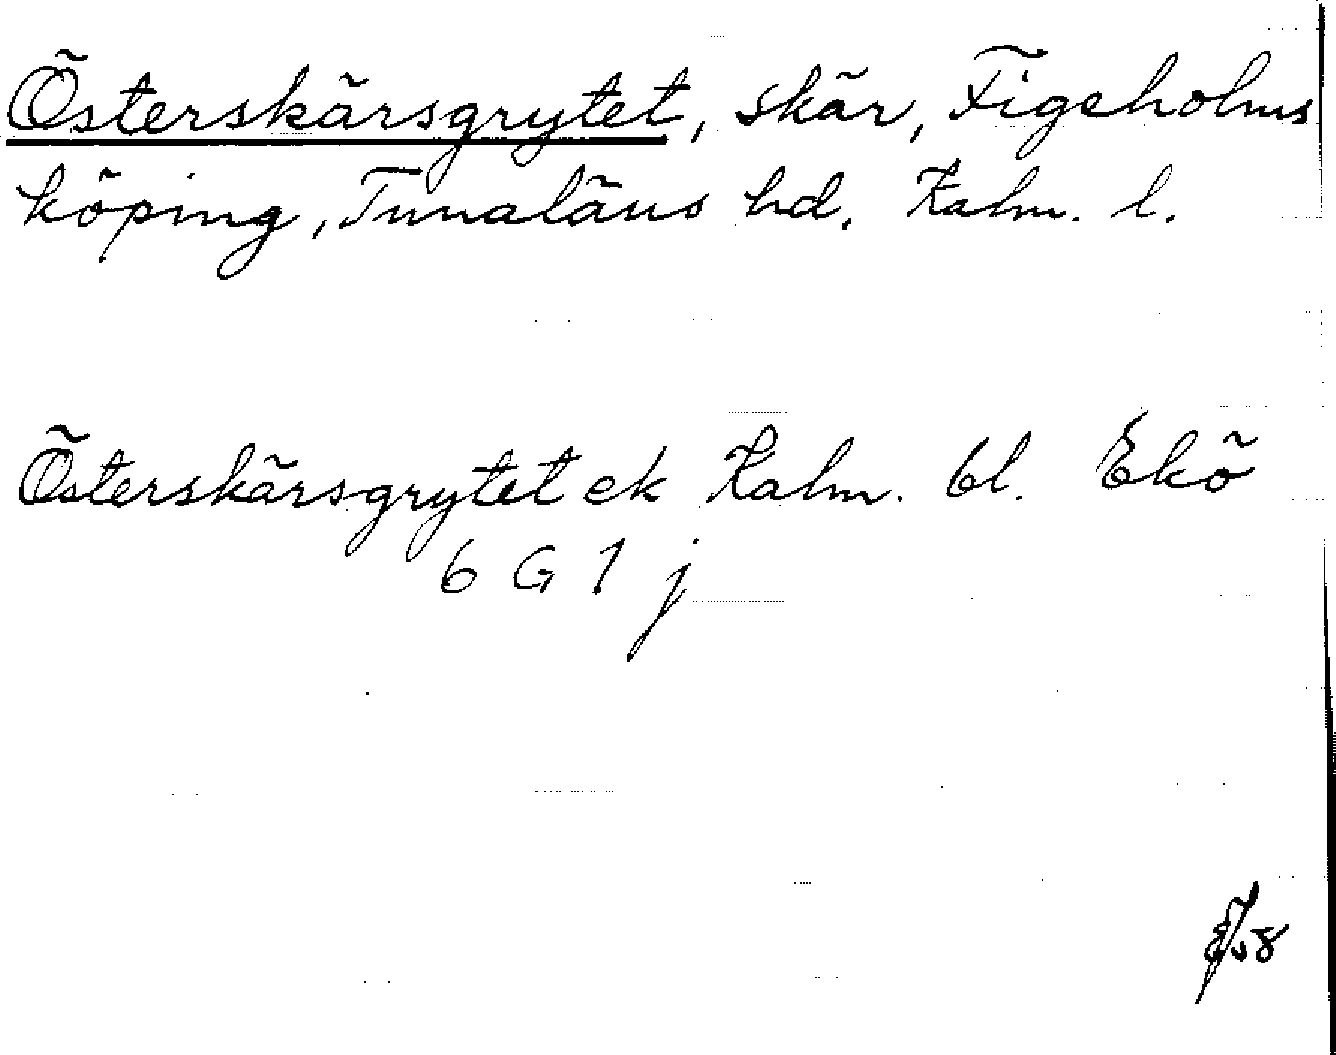 Österskärsgrytet, skär, Figeholms
köping, Tunaläns hd. Kalm. l.
Österskärsgrytet ek Kalm. bl. Ekö
6 G 1 j